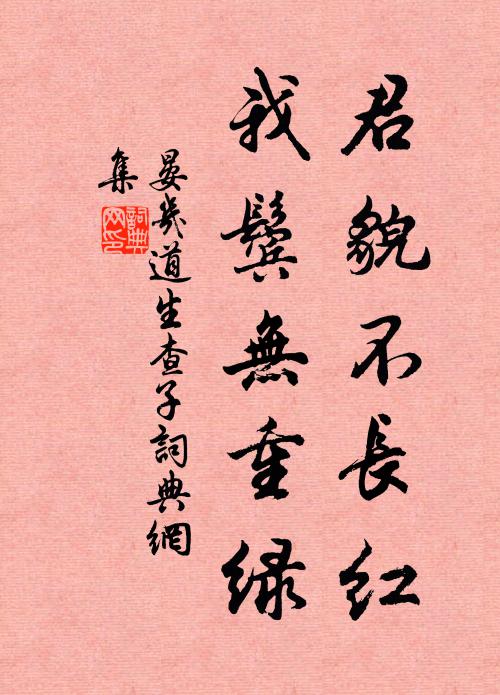 君貌不長紅
我鬢無重綠
晏幾道生查子詞典網
集
詞典網印